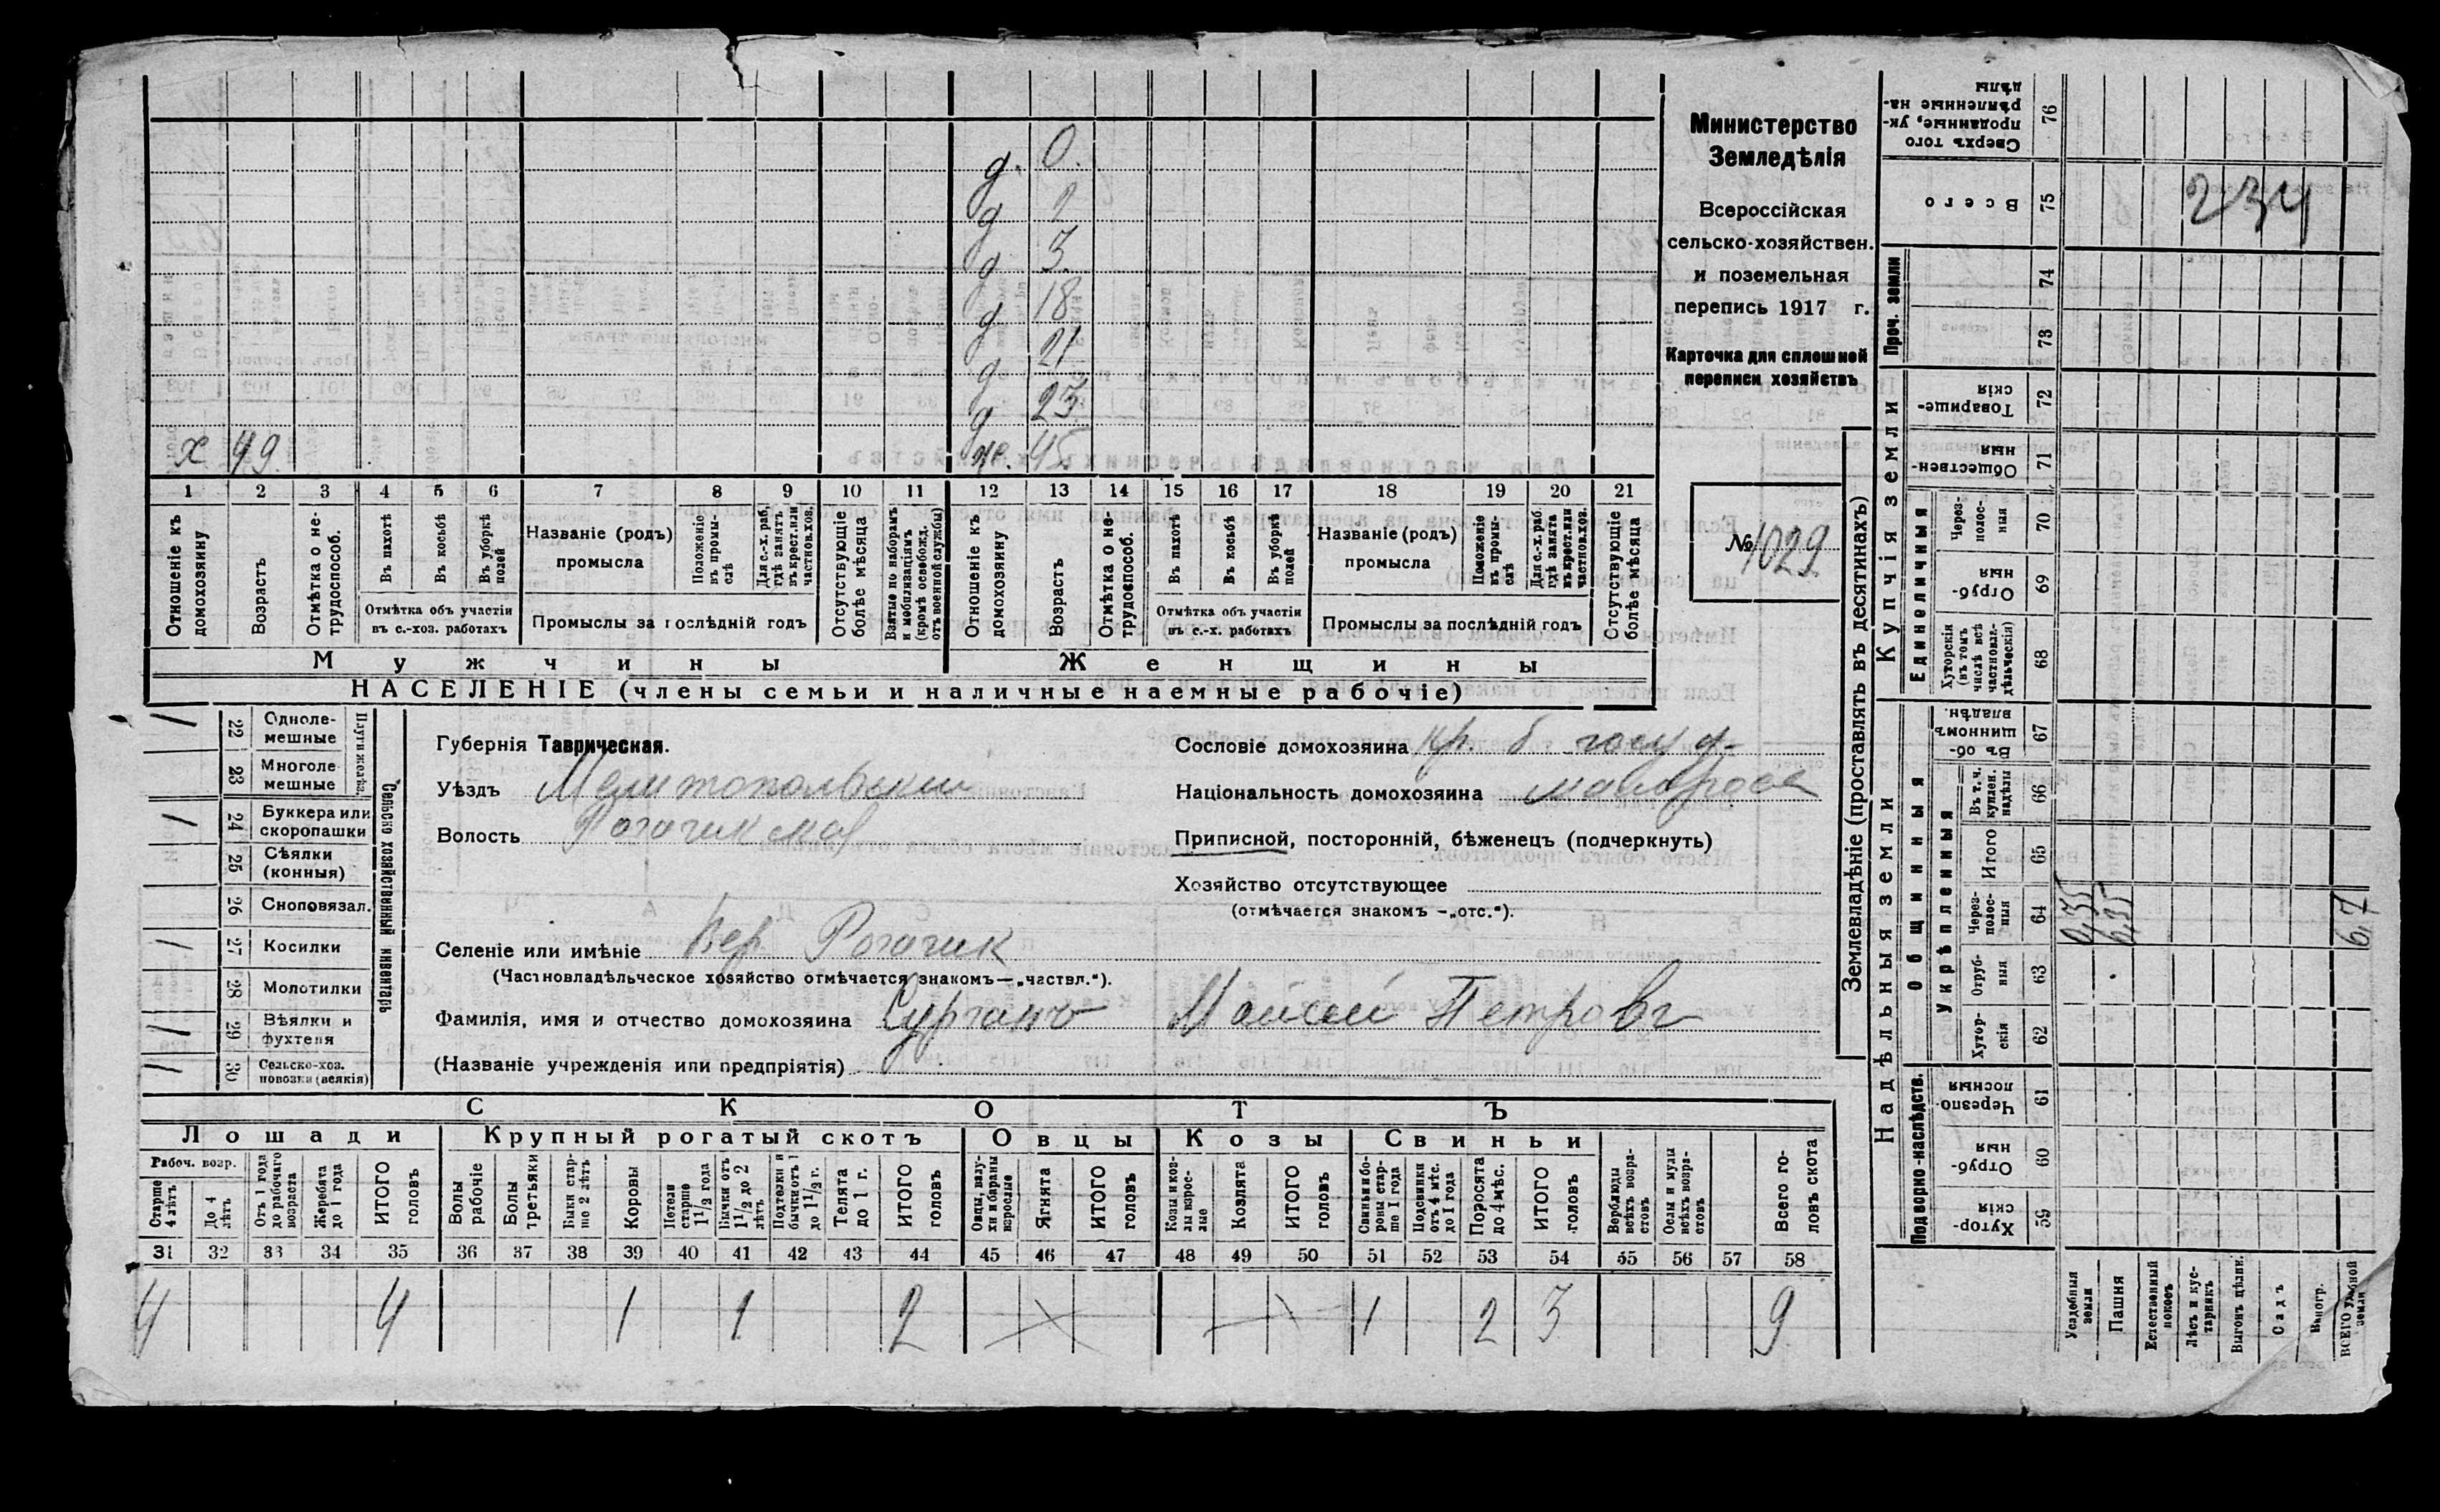 д. 0.
д 2
д 3.
д 18
д 21
д 23.
х 49. ж. 45
1 2 3 4 5 6 7 8 9 10 11 12 13 14 15 16 17 18 19 20 21
Отношеніе къ домохозяину
Возрастъ
Отмѣтка о нетрудоспособ.
Въ пахотѣ
Въ косьбѣ
Въ уборкѣ полей
Отмѣтка объ участіи въ с.-хоз. работахъ
Названіе (родъ) промысла
Положеніе въ промыслѣ
Для с.-х. раб., гдѣ занятъ въ крест. или частнов. хоз.
Промыслы за послѣдній годъ
Отсутствующіе болѣе мѣсяца
Взятые по наборамъ и мобилизаціямъ (кромѣ освобожд. отъ военной службы)
Отношеніе къ домохозяину
Возрастъ
Отмѣтка о нетрудоспособ.
Въ пахотѣ
Въ косьбѣ
Въ уборкѣ полей
Отмѣтка объ участіи въ с.-х. работахъ
Названіе (родъ) промысла
Положеніе въ промыслѣ
Для с.-х. раб. гдѣ занята въ крест. или частнов. хоз.
Промыслы за послѣдній годъ
Отсутствующіе болѣе мѣсяца
Мужчины Женщины
НАСЕЛЕНІЕ (члены семьи и наличные наемные рабочіе)
Министерство
Земледѣлія
Всероссійская
сельско-хозяйствен.
и поземельная
перепись 1917 г.
Карточка для сплошной
переписи хозяйствъ
№ 1029.
Сельско хозяйственный инвентарь
Плуги желѣз.
/ 22 Однолемешные
23 Многолемешные
/ 24 Буккера или скоропашки
25 Сѣялки (конныя)
26 Сноповязал.
/ 27 Косилки
28 Молотилки
/ 29 Вѣялки и фухтеля
/ 30 Сельско-хоз. повозки (всякія)
Губернія Таврическая.
Уѣздъ Мелитопольскій
Волость
Селеніе или имѣніе Вер. Рогачик
(Частновладѣльческое хозяйство отмѣчается знакомъ—„частвл.“).
Фамилія, имя и отчество домохозяина Сурганъ Моисей Петровъ
(Названіе учрежденія или предпріятія)
Сословіе домохозяина кр. б. госуд.
Національность домохозяина малоросс
Приписной, посторонній, бѣженецъ (подчеркнуть)
Хозяйство отсутствующее
(отмѣчается знакомъ —„отс.“).
СКОТЪ
Лошади Крупный рогатый скотъ Овцы Козы Свиньи
Рабоч. возр.
Старше 4 лѣтъ
До 4 лѣтъ
Отъ 1 года до рабочаго возраста
Жеребята до 1 года
ИТОГО головъ
Волы рабочіе
Волы третьяки
Быки старше 2 лѣтъ
Коровы
Нетели старше 1½ года
Бычки отъ 1½ до 2 лѣтъ
Подтелки и бычки отъ 1 до 1½ г.
Телята до 1 г.
ИТОГО головъ
Овцы, валухи и бараны взрослые
Ягнята
ИТОГО головъ
Козы и козлы взрослые
Козлята
ИТОГО головъ
Свиньи и боровы старше 1 года
Подсвинки отъ 4 мѣс. до 1 года
Поросята до 4 мѣс.
ИТОГО головъ
Верблюды всѣхъ возрастовъ
Ослы и мулы всѣхъ возрастовъ
Всего головъ скота
31 32 33 34 35 36 37 38 39 40 41 42 43 44 45 46 47 48 49 50 51 52 53 54 55 56 57 58
4 4 1 1 2 1 2 3 9
Землевладѣніе (проставлять въ десятинахъ)
Надѣльныя земли Купчія земли Проч. земли
Подворно-наслѣдств. Общинныя Укрѣпленныя Единоличныя
Сверхъ того проданные, укрѣпленные надѣлы 76
Всего 75
74
73
Товарищескія 72
Общественныя 71
Черезполосныя 70
Отрубныя 69
Хуторскія (въ томъ числѣ всѣ частновладѣльческія) 68
Въ общинномъ владѣн. 67
Въ т. ч. куплен. надѣлы 66
Итого 65
Черезполосныя 64
Отрубныя 63
Хуторскія 62
Черезполосныя 61
Отрубныя 60
Хуторскія 59
234
0,35
6,35
6,7
Усадебныя земли
Пашня
Естественный покосъ
Лѣсъ и кустарникъ
Выгонъ цѣлин.
Садъ
Виногр.
ВСЕГО удобной земли